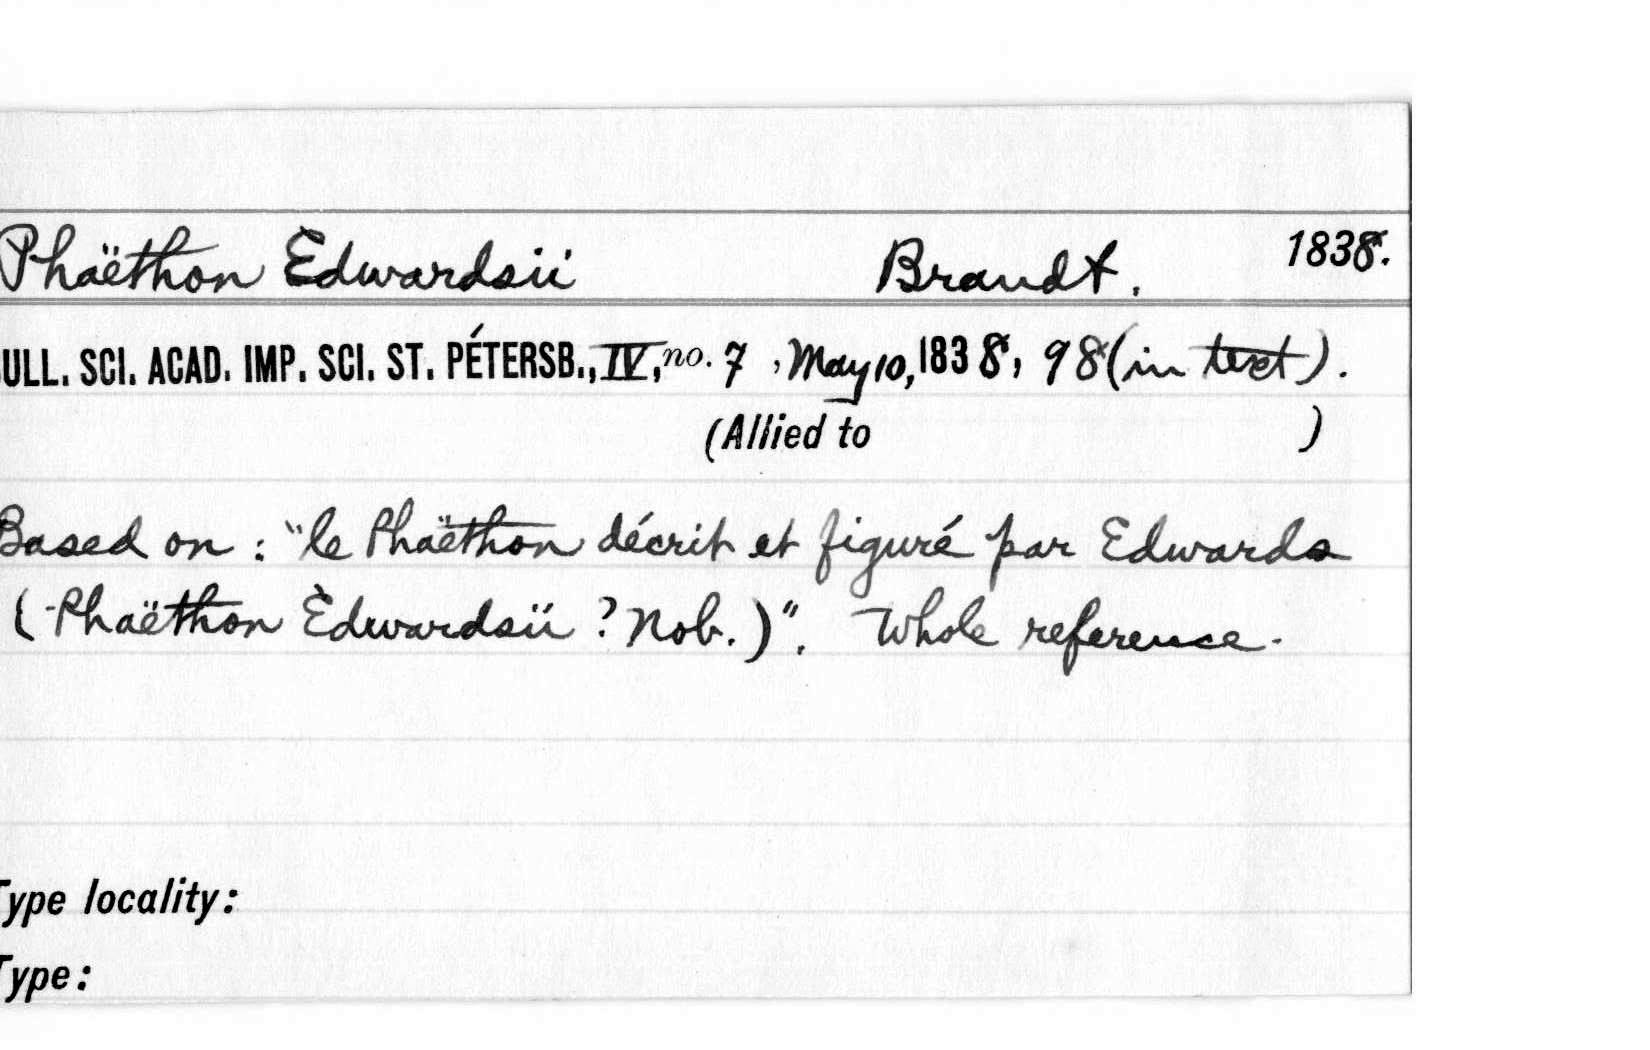 Phaëthon Edwardsii Brandt. 1838.
ULL. SCI. ACAD. IMP. SCI. ST. PÉTERSB., IV, no. 7, May 10, 1838, 98 (in text).
(Allied to )
Based on : "le Phaëthon décrit et figuré par Edwards
(Phaëthon Edwardsii ? Nob.)". Whole reference.
Type locality:
Type: